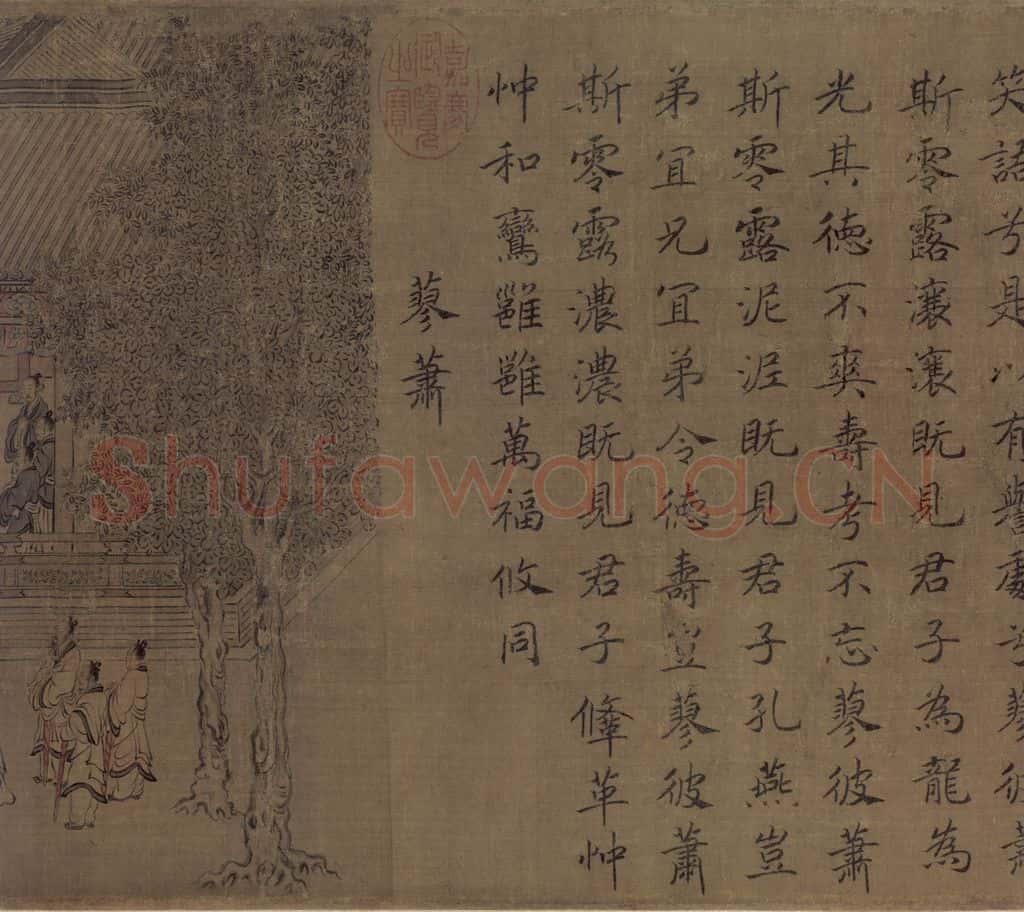 笑語兮是以有譽處兮蓼彼蕭
斯零露瀼瀼既見君子為龍為
光其徳不爽壽考不忘蓼彼蕭
斯零露泥泥既見君子孔燕豈
弟宜兄宜弟令徳壽豈蓼彼蕭
斯零露濃濃既見君子鞗革忡
忡和鸞雝雝萬福攸同
蓼蕭
嘉慶
御覽
之寶
Shufawang.CN